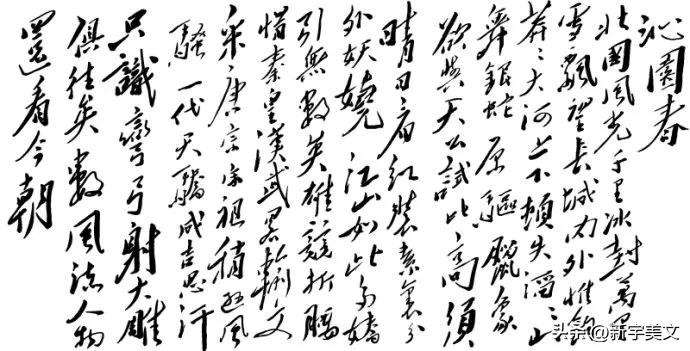 沁園春
北國風光千里冰封萬里
雪飄望長城內外惟餘
莽〻大河上下頓失滔〻山
舞銀蛇原驅臘象
欲與天公試比高須
晴日看紅裝素裹分
外妖嬈江山如此多嬌
引無數英雄競折腰
惜秦皇漢武畧輸文
采唐宗宋祖稍遜風
騷一代天驕成吉思汗
只識彎弓射大雕
俱往矣數風流人物
還看今朝
头条@新宇美文